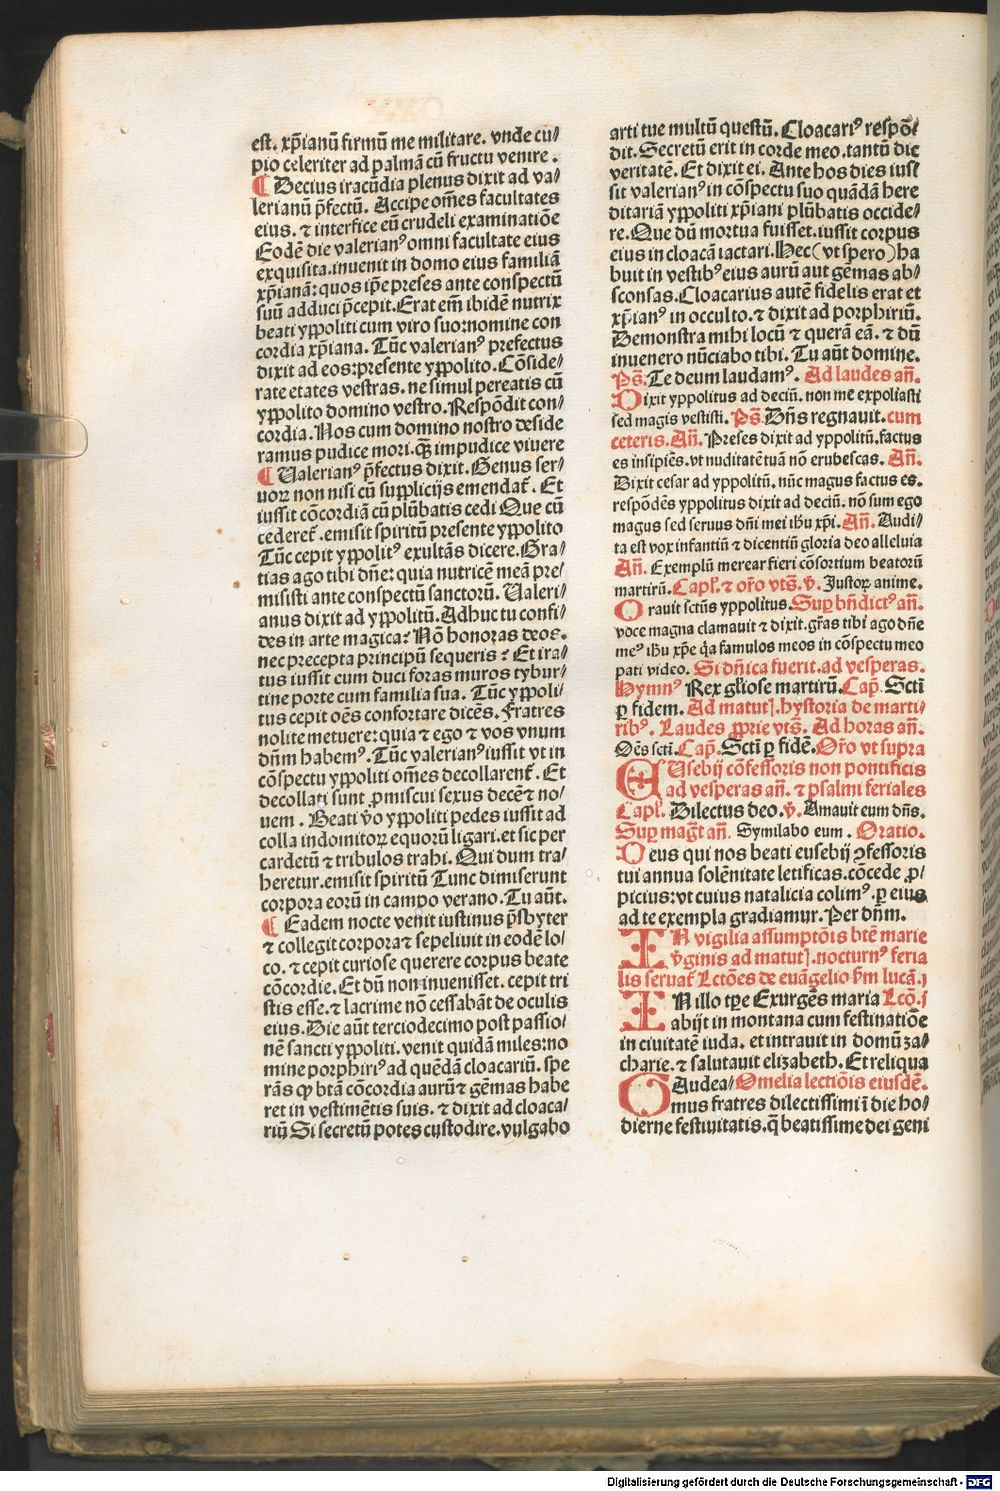 est. xp̃ianũ firmũ me militare. vnde cu/
pio celeriter ad palmã cũ fructu venire.
¶ Decius iracũdia plenus dixit ad va/
lerianũ p̃fectũ. Accipe om̃es facultates
eius. ⁊ interfice eũ crudeli examinatiõe
Eodẽ die valerianꝰ omni facultate eius
exquisita.inuenit in domo eius familiã
xp̃ianã: quos ip̃e preses ante conspectũ
suũ adduci p̃cepit. Erat em̃ ibidẽ nutrix
beati yppoliti cum viro suo:nomine con
cordia xp̃iana. Tũc valerianꝰ prefectus
dixit ad eos:presente yppolito. Cõside/
rate etates vestras. ne simul pereatis cũ
yppolito domino vestro. Respõdit con/
cordia. Nos cum domino nostro deside
ramus pudice mori.q̃ꝫ impudice viuere
¶ Valerianꝰ p̃fectus dixit. Genus ser/
uoꝝ non nisi cũ supplicijs emendat̃. Et
iussit cõcordiã cũ plũbatis cedi Que cũ
cederet̃.emisit spiritũ presente yppolito
Tũc cepit yppolitꝰ exultãs dicere. Gra/
tias ago tibi dñe: quia nutricẽ meã pre/
misisti ante conspectũ sanctorũ. Valeri/
anus dixit ad yppolitũ. Adhuc tu confi/
des in arte magica? Nõ honoras deos.
nec precepta principũ sequeris? Et ira/
tus iussit cum duci foras muros tybur/
tine porte cum familia sua. Tũc yppoli/
tus cepit oẽs confortare dicẽs. Fratres
nolite metuere: quia ⁊ ego ⁊ vos vnum
dñm habemꝰ. Tũc valerianꝰ iussit vt in
cõspectu yppoliti om̃es decollarent̃. Et
decollati sunt ꝓmiscui sexus decẽ ⁊ no/
uem. Beati v̾o yppoliti pedes iussit ad
colla indomitoꝝ equorũ ligari.et sic per
cardetũ ⁊ tribulos trahi. Qui dum tra/
heretur.emisit spiritũ Tunc dimiserunt
corpora eorũ in campo verano. Tu aũt.
¶ Eadem nocte venit iustinus p̃sbyter
⁊ collegit corpora ⁊ sepeliuit in eodẽ lo/
co. ⁊ cepit curiose querere corpus beate
cõcordie. Et dũ non inuenisset. cepit tri
stis esse. ⁊ lacrime nõ cessabãt de oculis
eius. Die aũt terciodecimo post passio/
nẽ sancti yppoliti. venit quidã miles:no
mine porphiriꝰ ad quẽdã cloacariũ. spe
rãs ꝙ btã cõcordia aurũ ⁊ gẽmas habe
ret in vestimẽtis suis. ⁊ dixit ad cloaca/
riũ Si secretũ potes custodire. vulgabo
arti tue multũ questũ. Cloacariꝰ respõ/
dit. Secretũ erit in corde meo.tantũ dic
veritatẽ. Et dixit ei. Ante hos dies ius/
sit valerianꝰ in cõspectu suo quãdã here
ditariã yppoliti xp̃iani plũbatis occide/
re. Que dũ mortua fuisset.iussit corpus
eius in cloacã iactari. Hec (vt spero) ha
buit in vestibꝰ eius aurũ aut gẽmas ab/
sconsas. Cloacarius autẽ fidelis erat et
xp̃ianꝰ in occulto. ⁊ dixit ad porphiriũ.
Demonstra mihi locũ ⁊ querã eã. ⁊ dũ
inuenero nũciabo tibi. Tu aũt domine.
Ps̃. Te deum laudamꝰ. Ad laudes añ.
Dixit yppolitus ad deciũ. non me expoliasti
sed magis vestisti. Ps̃. Dñs regnauit. cum
ceteris. Añ. Preses dixit ad yppolitũ.factus
es insipiẽs.vt nuditatẽ tuã nõ erubescas. Añ.
Dixit cesar ad yppolitũ. nũc magus factus es.
respõdẽs yppolitus dixit ad deciũ: nõ sum ego
magus sed seruus dñi mei ihũ xp̃i. Añ. Audi/
ta est vox infantiũ ⁊ dicentiũ gloria deo alleluia
Añ. Exemplũ merear fieri cõsortium beatorũ
martirũ. Capl̃. ⁊ or̃o vts̃. ℣. Justoꝝ anime.
Orauit sctũs yppolitus. Suꝑ bñdictꝰ añ.
voce magna clamauit ⁊ dixit.gr̃as tibi ago dñe
meꝰ ihũ xp̃e q̃a famulos meos in cõspectu meo
pati video. Si dñica fuerit.ad vesperas.
Hymnꝰ Rex gl̃iose martirũ. Cap̃. Scti
ꝑ fidem. Ad matut̃. hystoria de marti/
ribꝰ. Laudes ꝓprie vts̃. Ad horas añ.
Oẽs scti. Cap̃. Scti ꝑ fidẽ. Or̃o vt supra
EUsebij cõfessoris non pontificis
ad vesperas añ. ⁊ psalmi feriales
Capl̃. Dilectus deo. ℣. Amauit eum dñs.
Suꝑ mag̃t añ. Symilabo eum. Oratio.
Deus qui nos beati eusebij ꝯfessoris
tui annua solẽnitate letificas. cõcede ꝓ/
picius: vt cuius natalicia colimꝰ. ꝑ eius
ad te exempla gradiamur. Per dñm.
IN vigilia assumptõis btẽ marie
v̾ginis ad matut̃. nocturnꝰ feria
lis seruat̃ Lctões de euãgelio ẜm lucã. j
IN illo tp̃e Exurgẽs maria Lcõ. j
abijt in montana cum festinatiõe
in ciuitatẽ iuda. et intrauit in domũ za/
charie. ⁊ salutauit elizabeth. Et reliqua
GAudea/ Omelia lectiõis eiusdẽ.
mus fratres dilectissimi ĩ die ho/
dierne festiuitatis. q̃ beatissime dei geni
Digitalisierung gefördert durch die Deutsche Forschungsgemeinschaft - DFG